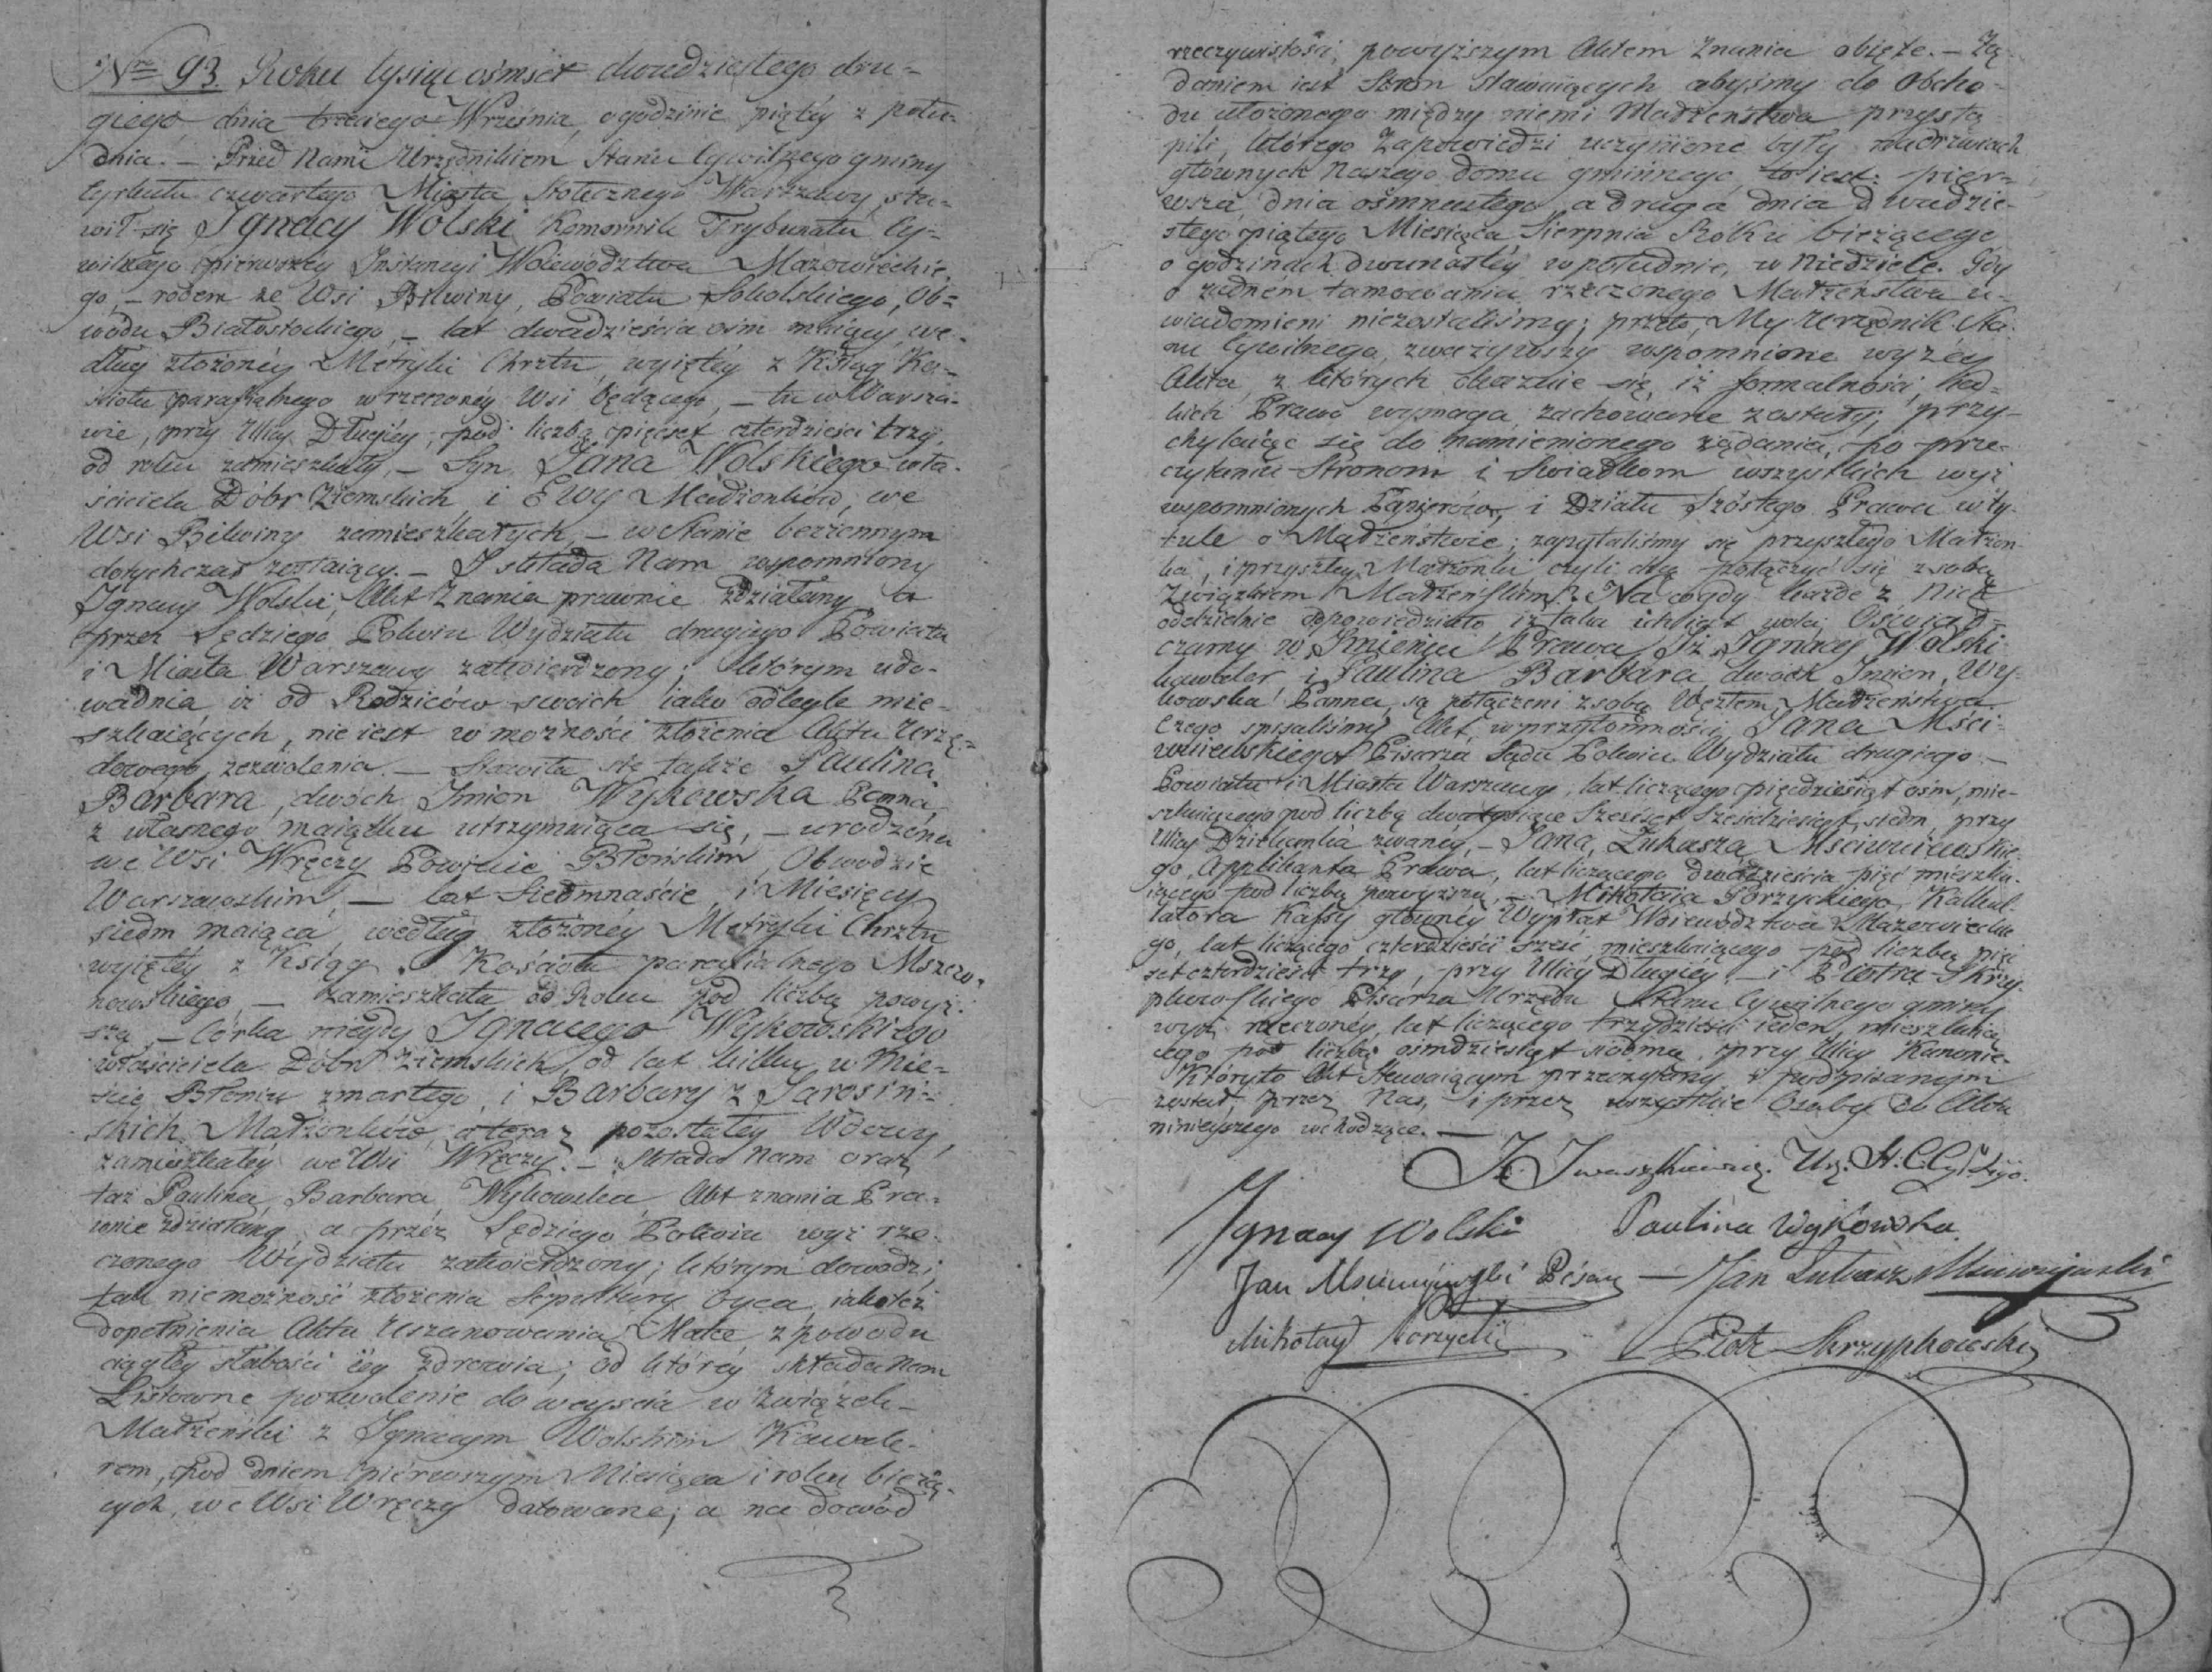 Nro 93. Roku tysiąc ośmset dwudziestego dru-
giego, dnia trzeciego Września, o godzinie piątéy z połu-
dnia. — Przed Nami Urzędnikiem Stanu Cywilnego gminy
Cyrkułu czwartego Miasta Stołecznego Warszawy, sta-
wił się Ignacy Wolski Komornik Trybunału Cy-
wilnego pierwszey Instancyi Woiewództwa Mazowieckie-
go, — rodem ze Wsi Bilwiny, Powiatu Sokolskiego, Ob-
wodu Białostockiego, — lat dwadzieścia ośm maiący, we-
dług złożonéy Metryki Chrztu, wyiętéy z Ksiąg Ko-
ścioła parafialnego w rzeczonéy Wsi będącego, — tu w Warsza-
wie, przy Ulicy Długiéy, pod liczbą pięćset czterdzieści trzy,
od roku zamieszkały, — Syn Jana Wolskiego wła-
ściciela Dóbr Ziemskich, i Ewy Małżonków, we
Wsi Bilwiny zamieszkałych, — w stanie bezżennym
dotychczas zostaiący. — I składa Nam wspomniony
Ignacy Wolski, Akt Znania prawnie zdziałany, a
przez Sędziego Pokoiu Wydziału drugiego Powiatu
i Miasta Warszawy zatwierdzony; którym udo-
wadnia iż od Rodziców swoich iako odległe mie-
szkaiących, nie iest w możności złożenia Aktu Urzę-
dowego zezwolenia. — Stawiła się także Paulina
Barbara, dwóch Imion Wykowska Panna,
z własnego maiątku utrzymuiąca się, — urodzona
we Wsi Wręczy Powiecie Błońskim, Obwodzie
Warszawskim, — lat Siedmnaście i Miesięcy
siedm maiąca, według złożonéy Metryki Chrztu
wyiętéy z Ksiąg Kościoła parafialnego Mszczo-
nowskiego, — zamieszkała od Roku pod liczbą powyż-
szą, — Córka niegdy Ignacego Wykowskiego
właściciela Dóbr Ziemskich, od lat kilku w Mie-
ście Błoniu zmarłego, i Barbary z Sarosin-
skich Małżonków, a teraz pozostałéy Wdowy,
zamieszkałéy we Wsi Wręczy. — Składa Nam oraz
taż Paulina Barbara Wykowska, Akt znania Pra-
wnie zdziałany, a przez Sędziego Pokoiu wyż rze-
czonego Wydziału zatwierdzony; którym dowodzi,
tak niemożność złożenia Sepultury Oyca, iakoteż
dopełnienia Aktu Uszanowania Matce, z powodu
ciągłéy słabości iéy zdrowia; od któréy składa Nam
Listowne pozwolenie do weyścia w Związek
Małżeński z Ignacym Wolskim Kawale-
rem, pod dniem pierwszym Miesiąca i roku bieżą-
cych, we Wsi Wręczy datowane; a na dowód
rzeczywistości, powyższym Aktem Znania obięte. — Żą-
daniem iest Stron stawaiących abyśmy do Obcho-
du ułożonego między niemi Małżeństwa przystą-
pili, którego Zapowiedzi uczynione były na drzwiach
głównych Naszego domu gminnego, to iest: pier-
wsza, dnia ośmnastego, a druga dnia dwudzie-
stego piątego Miesiąca Sierpnia Roku bieżącego
o godzinach dwunastéy w południe, w Niedziele. Gdy
o żadnem tamowaniu rzeczonego Małżeństwa u-
wiadomieni niezostaliśmy; przeto, My Urzędnik Sta-
nu Cywilnego, zważywszy wspomnione wyżéy
Akta, z których okazuie się, iż formalności, ia-
kich Prawo wymaga zachowane zostały, przy-
chylaiąc się do namienionego żądania, po prze-
czytaniu Stronom i Swiadkom wszystkich wyż
wspomnionych Papierów, i Działu Szóstego Prawa w ty-
tule o Małżeństwie; zapytaliśmy się przyszłego Małżon-
ka, i przyszłey Małżonki czyli chcą połączyć się z sobą
Związkiem Małżeńskim? Na co gdy każde z Nich
oddzielnie odpowiedziało iż taka ich iest wola, Oświad-
czamy w Imieniu Prawa, Iż Ignacy Wolski
kawaler i Paulina Barbara dwóch Imion, Wy-
kowska Panna są połączeni z sobą Węzłem Małżeństwa.
Czego spisaliśmy Akt w przytomności Jana Mści-
wuiewskiego Pisarza Sądu Pokoiu Wydziału drugiego —
Powiatu i Miasta Warszawy, lat liczącego pięćdziesiąt ośm, mie-
szkaiącego pod liczbą dwatysiące Sześćset Sześćdziesiąt siedm, przy
Ulicy Dziekanka zwanéy, — Jana Łukasza Mściwuiewskie-
go, Applikanta Prawa, lat liczącego dwadzieścia pięć mieszka-
iącego pod liczbą powyższą, — Mikołaia Porzyckiego, Kalkul-
latora Kassy główney Wypłat Woiewództwa Mazowieckie-
go, lat liczącego czterdzieści sześć, mieszkaiącego pod liczbą pięć-
set czterdzieści trzy, przy Ulicy Długiéy, — i Piotra Skrzy-
pkowskiego Pisarza Urzędu Stanu Cywilnego gminy
wyż rzeczonéy, lat liczącego trzydzieści ieden, mieszkaią-
cego pod liczbą ośmdziesiąt siódmą, przy Ulicy Kanonie.
Któryto Akt Stawaiącym przeczytany i podpisanym
został, przez Nas, i przez wszystkie Osoby do Aktu
niniejszego wchodzące. —
J. Iwaszkiewicz. Urz. St. Cyl.
Ignacy Wolski Paulina Wykowska.
Jan Msciwujewski Pisarz — Jan Łukasz Msciwujewski
Mikołay Porzycki Piotr Skrzypkowski